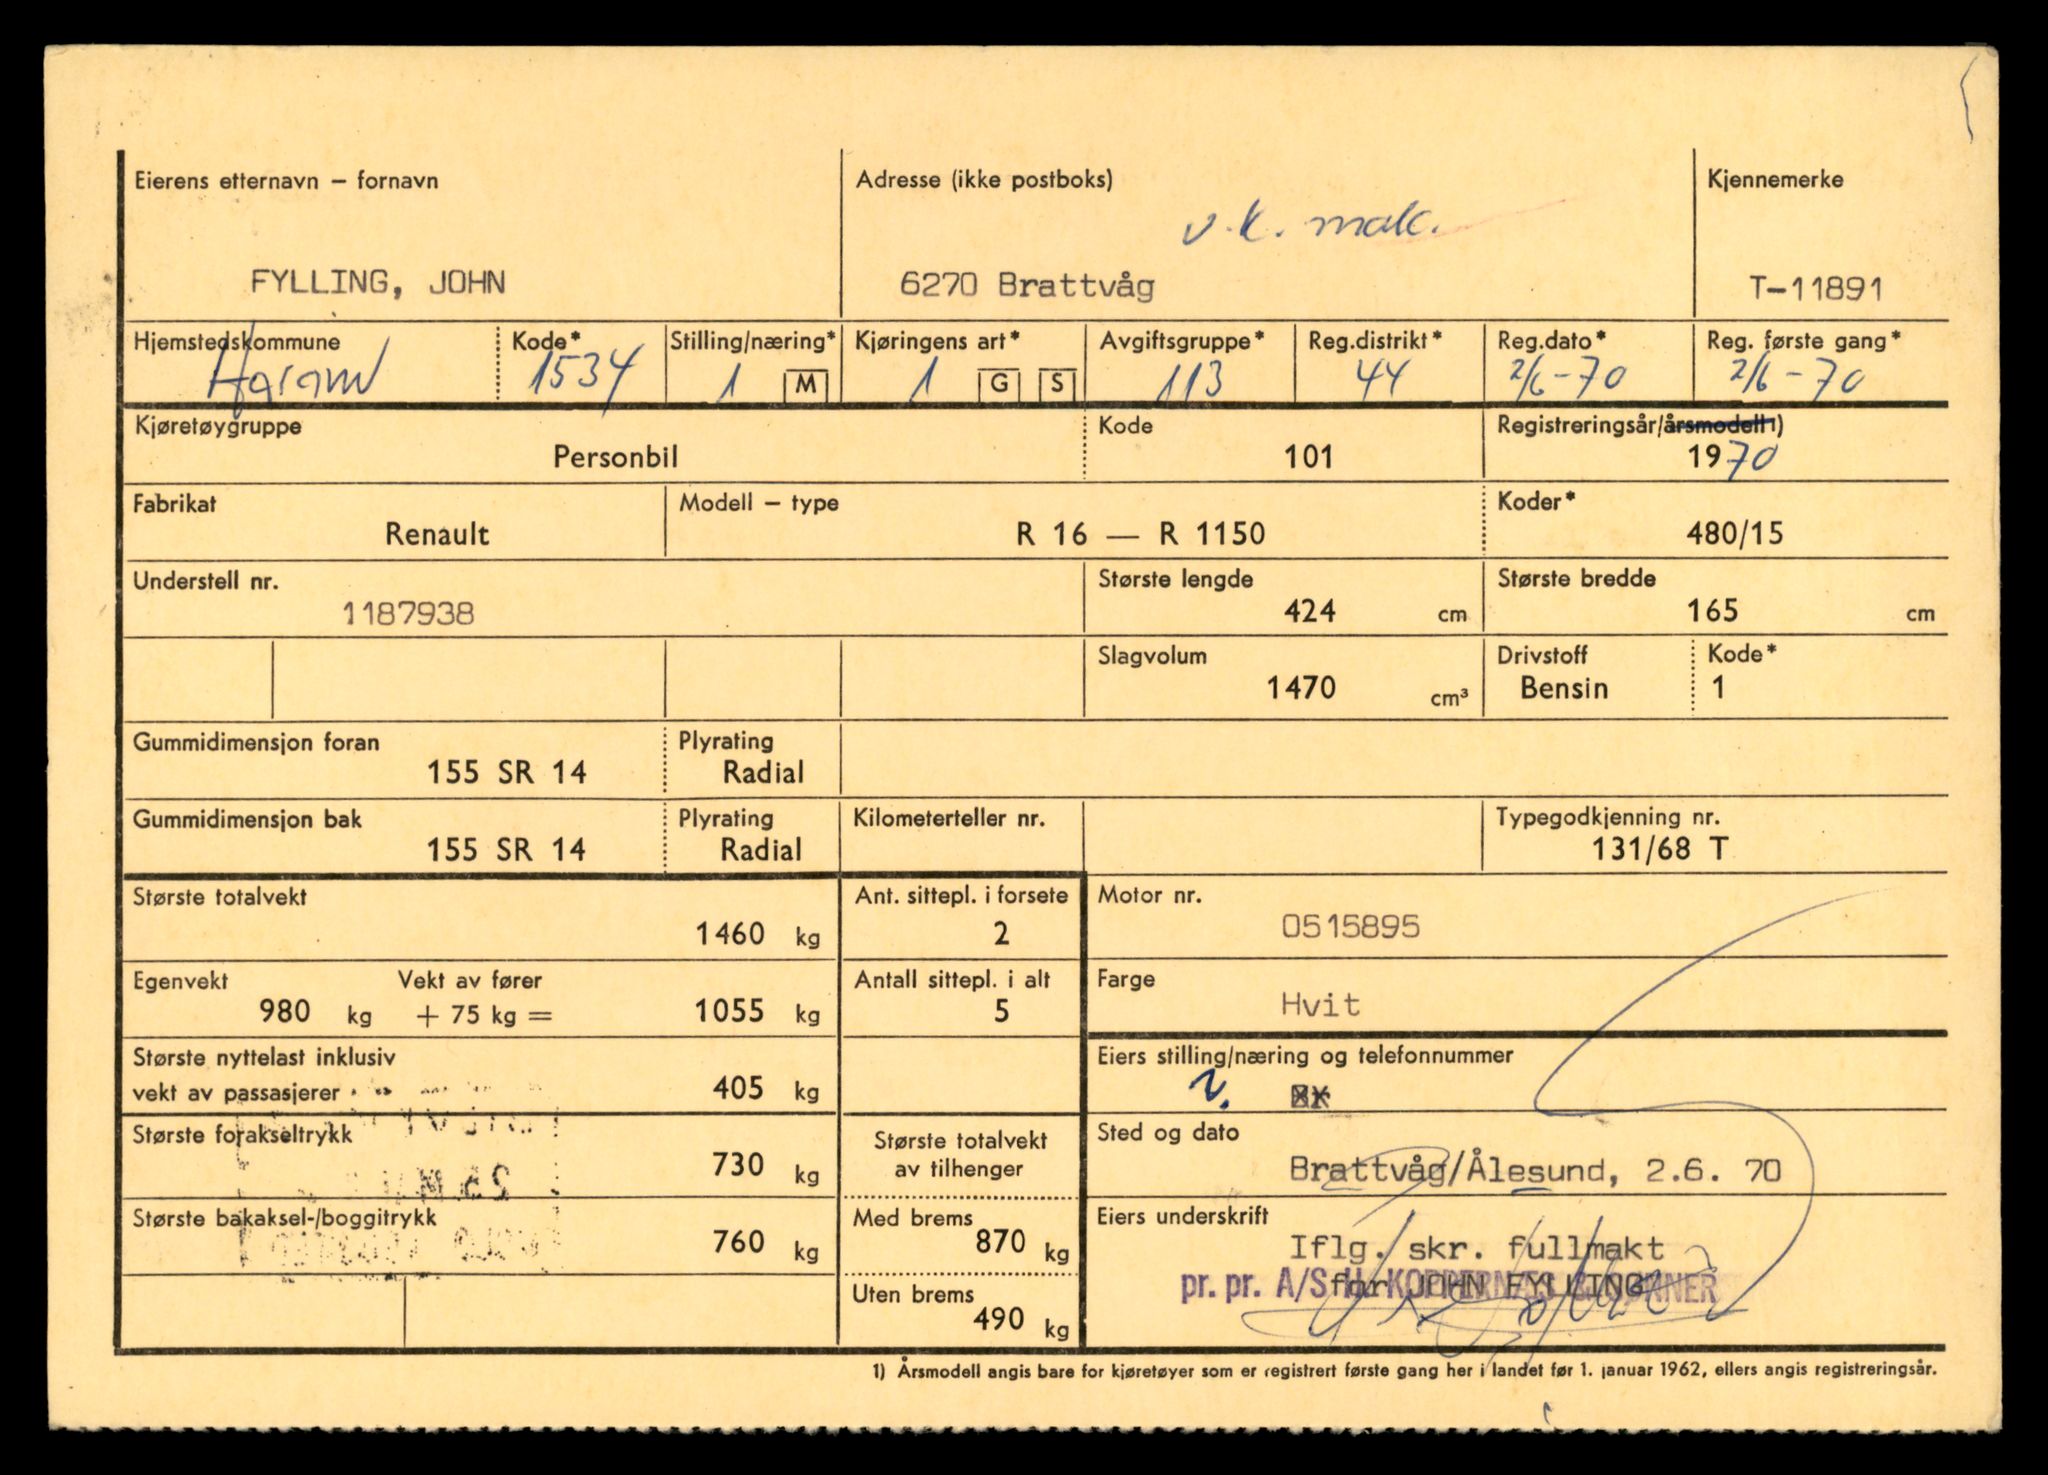 Eierens etternavn – fornavn
FYLLING, JOHN
Adresse (ikke postboks)
v.k. mak.
6270 Brattvåg
Kjennemerke
T-11891
Hjemstedskommune
Haram
Kode*
1534
Stilling/næring*
1 M
Kjøringens art*
1 G S
Avgiftsgruppe*
113
Reg.distrikt*
44
Reg.dato*
2/6-70
Reg. første gang*
2/6-70
Kjøretøygruppe
Personbil
Kode
101
Registreringsår/årsmodell1)
1970
Fabrikat
Renault
Modell – type
R 16 — R 1150
Koder*
480/15
Understell nr.
1187938
Største lengde
424 cm
Største bredde
165 cm
Slagvolum
1470 cm³
Drivstoff
Bensin
Kode*
1
Gummidimensjon foran
155 SR 14
Plyrating
Radial
Gummidimensjon bak
155 SR 14
Plyrating
Radial
Kilometerteller nr.
Typegodkjenning nr.
131/68 T
Største totalvekt
1460 kg
Ant. sittepl. i forsete
2
Motor nr.
0515895
Egenvekt
980 kg
Vekt av fører
+ 75 kg =
1055 kg
Antall sittepl. i alt
5
Farge
Hvit
Største nyttelast inklusiv
vekt av passasjerer
405 kg
Eiers stilling/næring og telefonnummer
Største forakseltrykk
730 kg
Største totalvekt
av tilhenger
Sted og dato
Brattvåg/Ålesund, 2.6. 70
Største bakaksel-/boggitrykk
760 kg
Med brems
870 kg
Uten brems
490 kg
Eiers underskrift
Iflg. skr. fullmakt
for JOHN FYLLING
pr. pr. A/S H. KOPPERNÆS & SØNNER
1) Årsmodell angis bare for kjøretøyer som er registrert første gang her i landet før 1. januar 1962, ellers angis registreringsår.